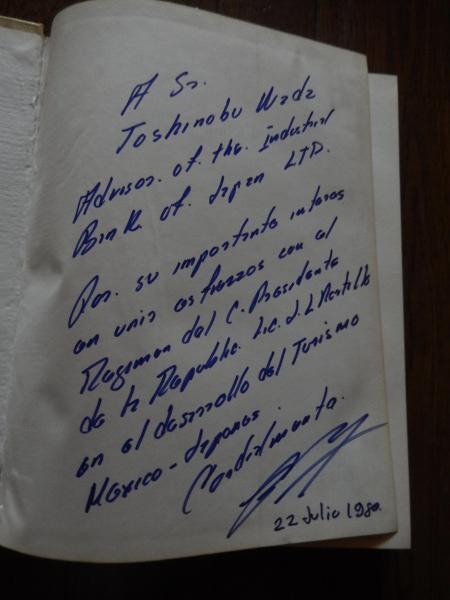 A Sr.
Toshinobu Wada
Advisor. of. the. Industrial
Bank of. Japan LTD.
Por. su importante interes
en unir esfuerzos con el
Regimen del C. Presidente
de la Republica. Lic. J. L. Portillo
en el desarrollo del Turismo
Mexico - Japones.
Cordialmente.
22 Julio 1980.